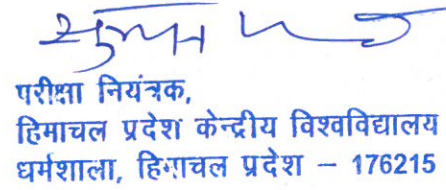 सुमन
परीक्षा नियंत्रक,
हिमाचल प्रदेश केन्द्रीय विश्वविद्यालय
धर्मशाला, हिमाचल प्रदेश – 176215